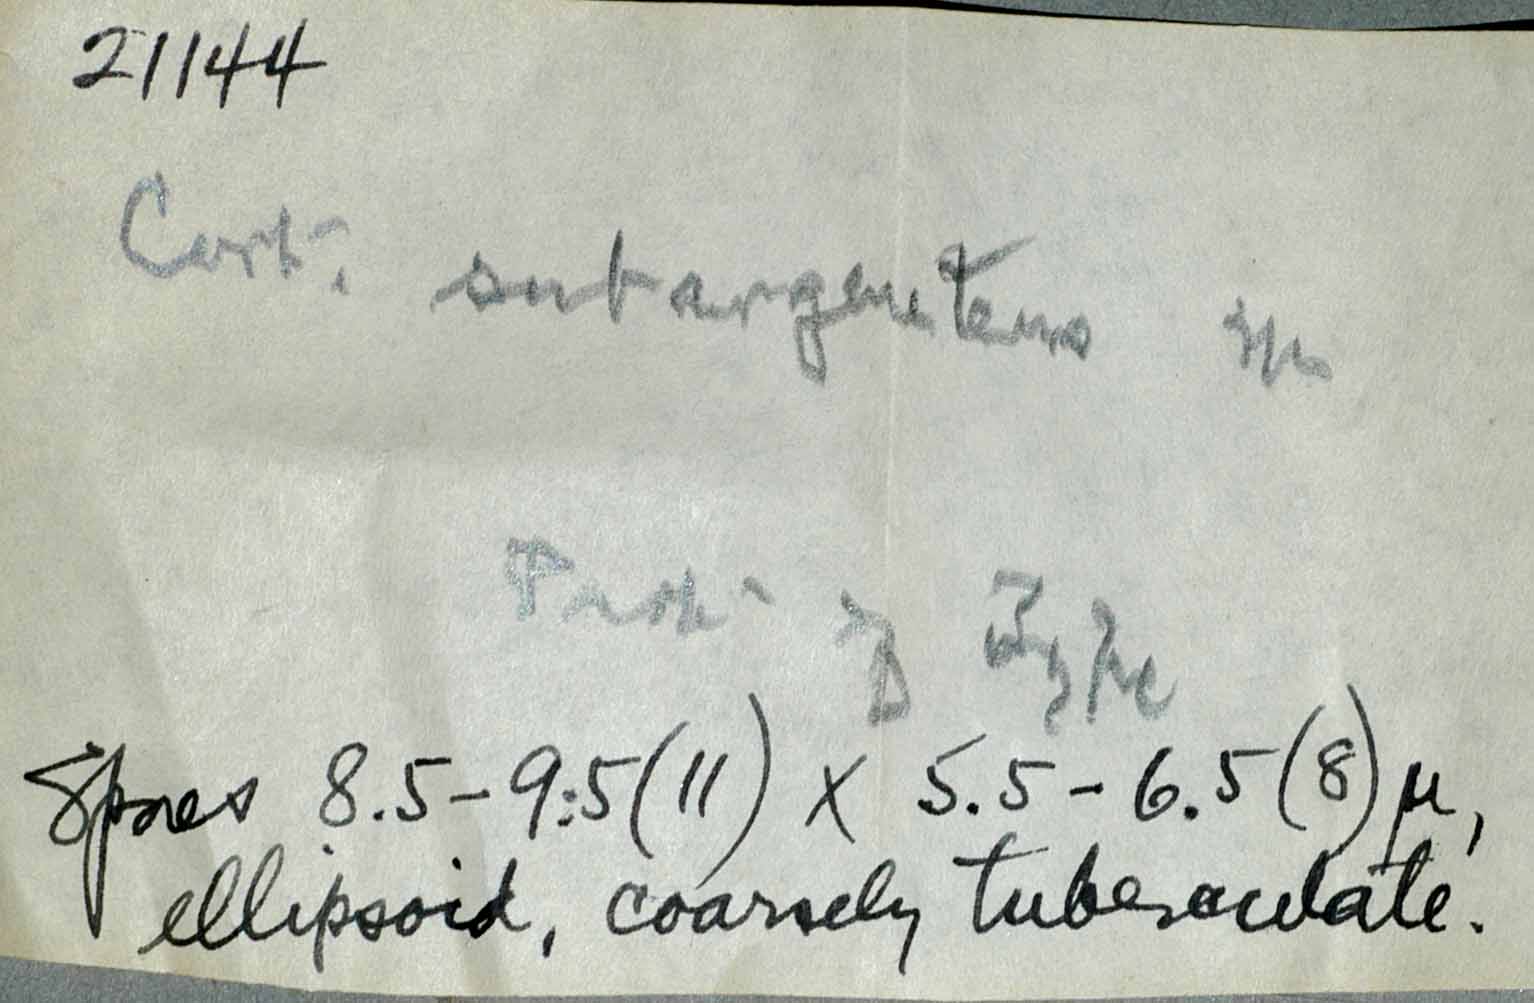 21144
Cort. subargenteus sp
Part of Type
Spores 8.5-9.5(11) x 5.5-6.5(8) µ,
ellipsoid, coarsely tuberculate.